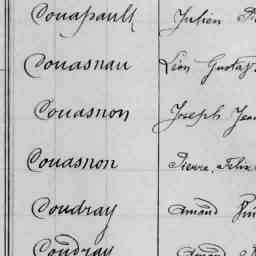 Couapault Julien
Couasnau Léon Gustav
Couasnon Joseph Jean
Couasnon Pierre, Félix
Coudray Amand
Coudray Amand